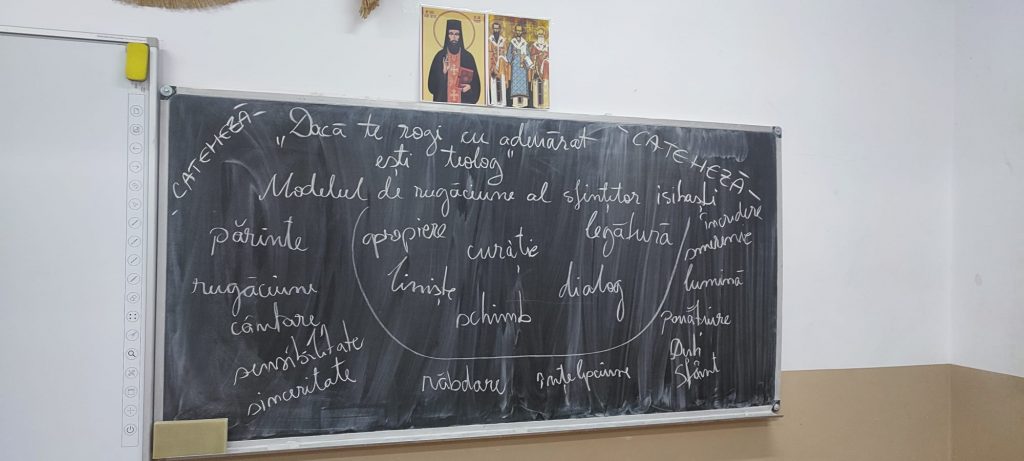 - CATEHEZĂ -
„Dacă te rogi cu adevărat
ești teolog"
- CATEHEZĂ -
Modelul de rugăciune al sfinților isihaști
părinte
apropiere
curăție
legătură
încredere
smerenie
rugăciune
liniște
dialog
lumină
cântare
schimb
povățuire
sensibilitate
Duh
Sfânt
sinceritate
răbdare
înțelepciune